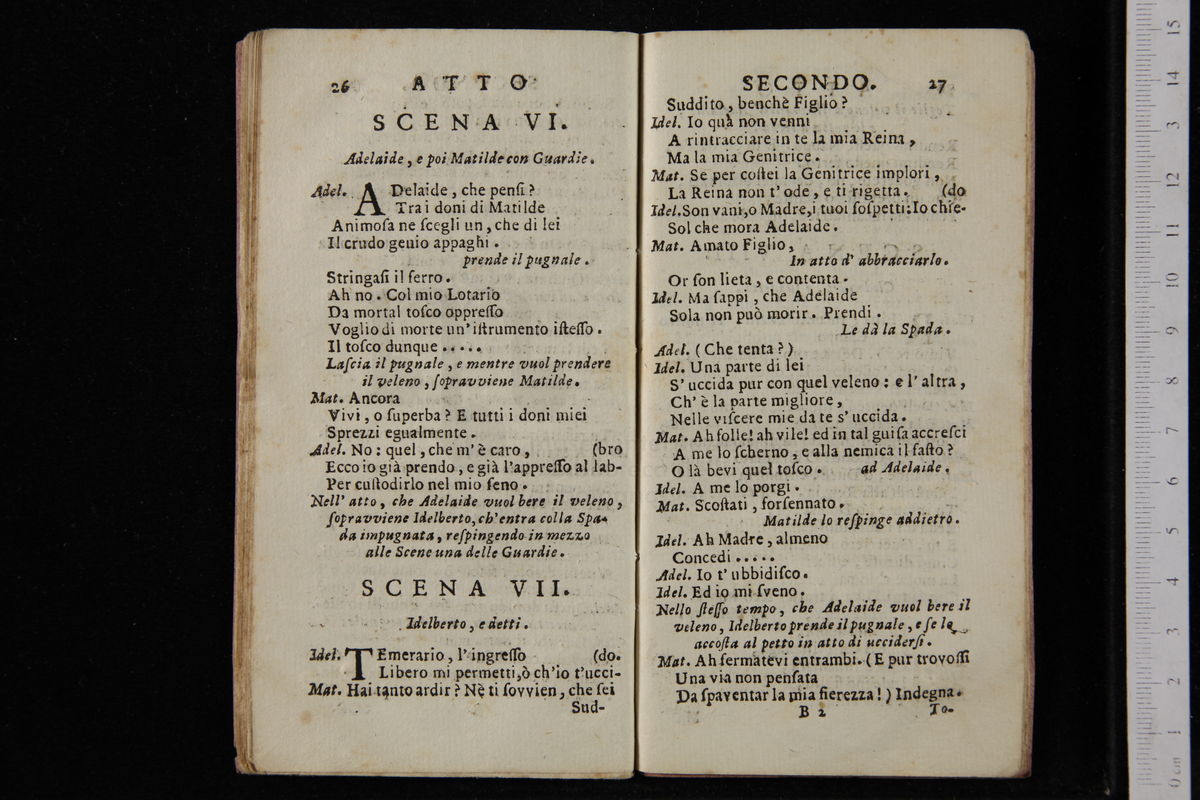 26 ATTO
SCENA VI.
Adelaide, e poi Matilde con Guardie.
Adel. ADelaide, che penſi?
Tra i doni di Matilde
Animoſa ne ſcegli un, che di lei
Il crudo genio appaghi.
prende il pugnale.
Stringaſi il ferro.
Ah no. Col mio Lotario
Da mortal toſco oppreſſo
Voglio di morte un' iſtrumento iſteſſo.
Il toſco dunque . . . . .
Laſcia il pugnale, e mentre vuol prendere
il veleno, ſopravviene Matilde.
Mat. Ancora
Vivi, o ſuperba? E tutti i doni miei
Sprezzi egualmente.
Adel. No: quel, che m' è caro, (bro
Ecco io già prendo, e già l'appreſſo al lab-
Per cuſtodirlo nel mio ſeno.
Nell' atto, che Adelaide vuol bere il veleno,
ſopravviene Idelberto, ch' entra colla Spa-
da impugnata, reſpingendo in mezzo
alle Scene una delle Guardie.
SCENA VII.
Idelberto, e detti.
Idel. TEmerario, l' ingreſſo (do.
Libero mi permetti, ò ch'io t'ucci-
Mat. Hai tanto ardir? Nè ti ſovvien, che ſei
Sud-
SECONDO. 27
Suddito, benchè Figlio?
Idel. Io quà non venni
A rintracciare in te la mia Reina,
Ma la mia Genitrice.
Mat. Se per coſtei la Genitrice implori,
La Reina non t' ode, e ti rigetta. (do
Idel. Son vani, o Madre, i tuoi ſoſpetti: Io chie-
Sol che mora Adelaide.
Mat. Amato Figlio,
In atto d' abbracciarlo.
Or ſon lieta, e contenta.
Idel. Ma ſappi, che Adelaide
Sola non può morir. Prendi.
Le dà la Spada.
Adel. (Che tenta?)
Idel. Una parte di lei
S' uccida pur con quel veleno: e l' altra,
Ch' è la parte migliore,
Nelle viſcere mie da te s' uccida.
Mat. Ah folle! ah vile! ed in tal guiſa accreſci
A me lo ſcherno, e alla nemica il faſto?
O là bevi quel toſco. ad Adelaide.
Idel. A me lo porgi.
Mat. Scoſtati, forſennato.
Matilde lo reſpinge addietro.
Idel. Ah Madre, almeno
Concedi . . . . .
Adel. Io t' ubbidiſco.
Idel. Ed io mi ſveno.
Nello ſteſſo tempo, che Adelaide vuol bere il
veleno, Idelberto prende il pugnale, e ſe lo
accoſta al petto in atto di ucciderſi.
Mat. Ah fermatevi entrambi. (E pur trovoſſi
Una via non penſata
Da ſpaventar la mia fierezza!) Indegna.
B 2 To-
15
14
13
12
11
10
9
8
7
6
5
4
3
2
1
0 cm